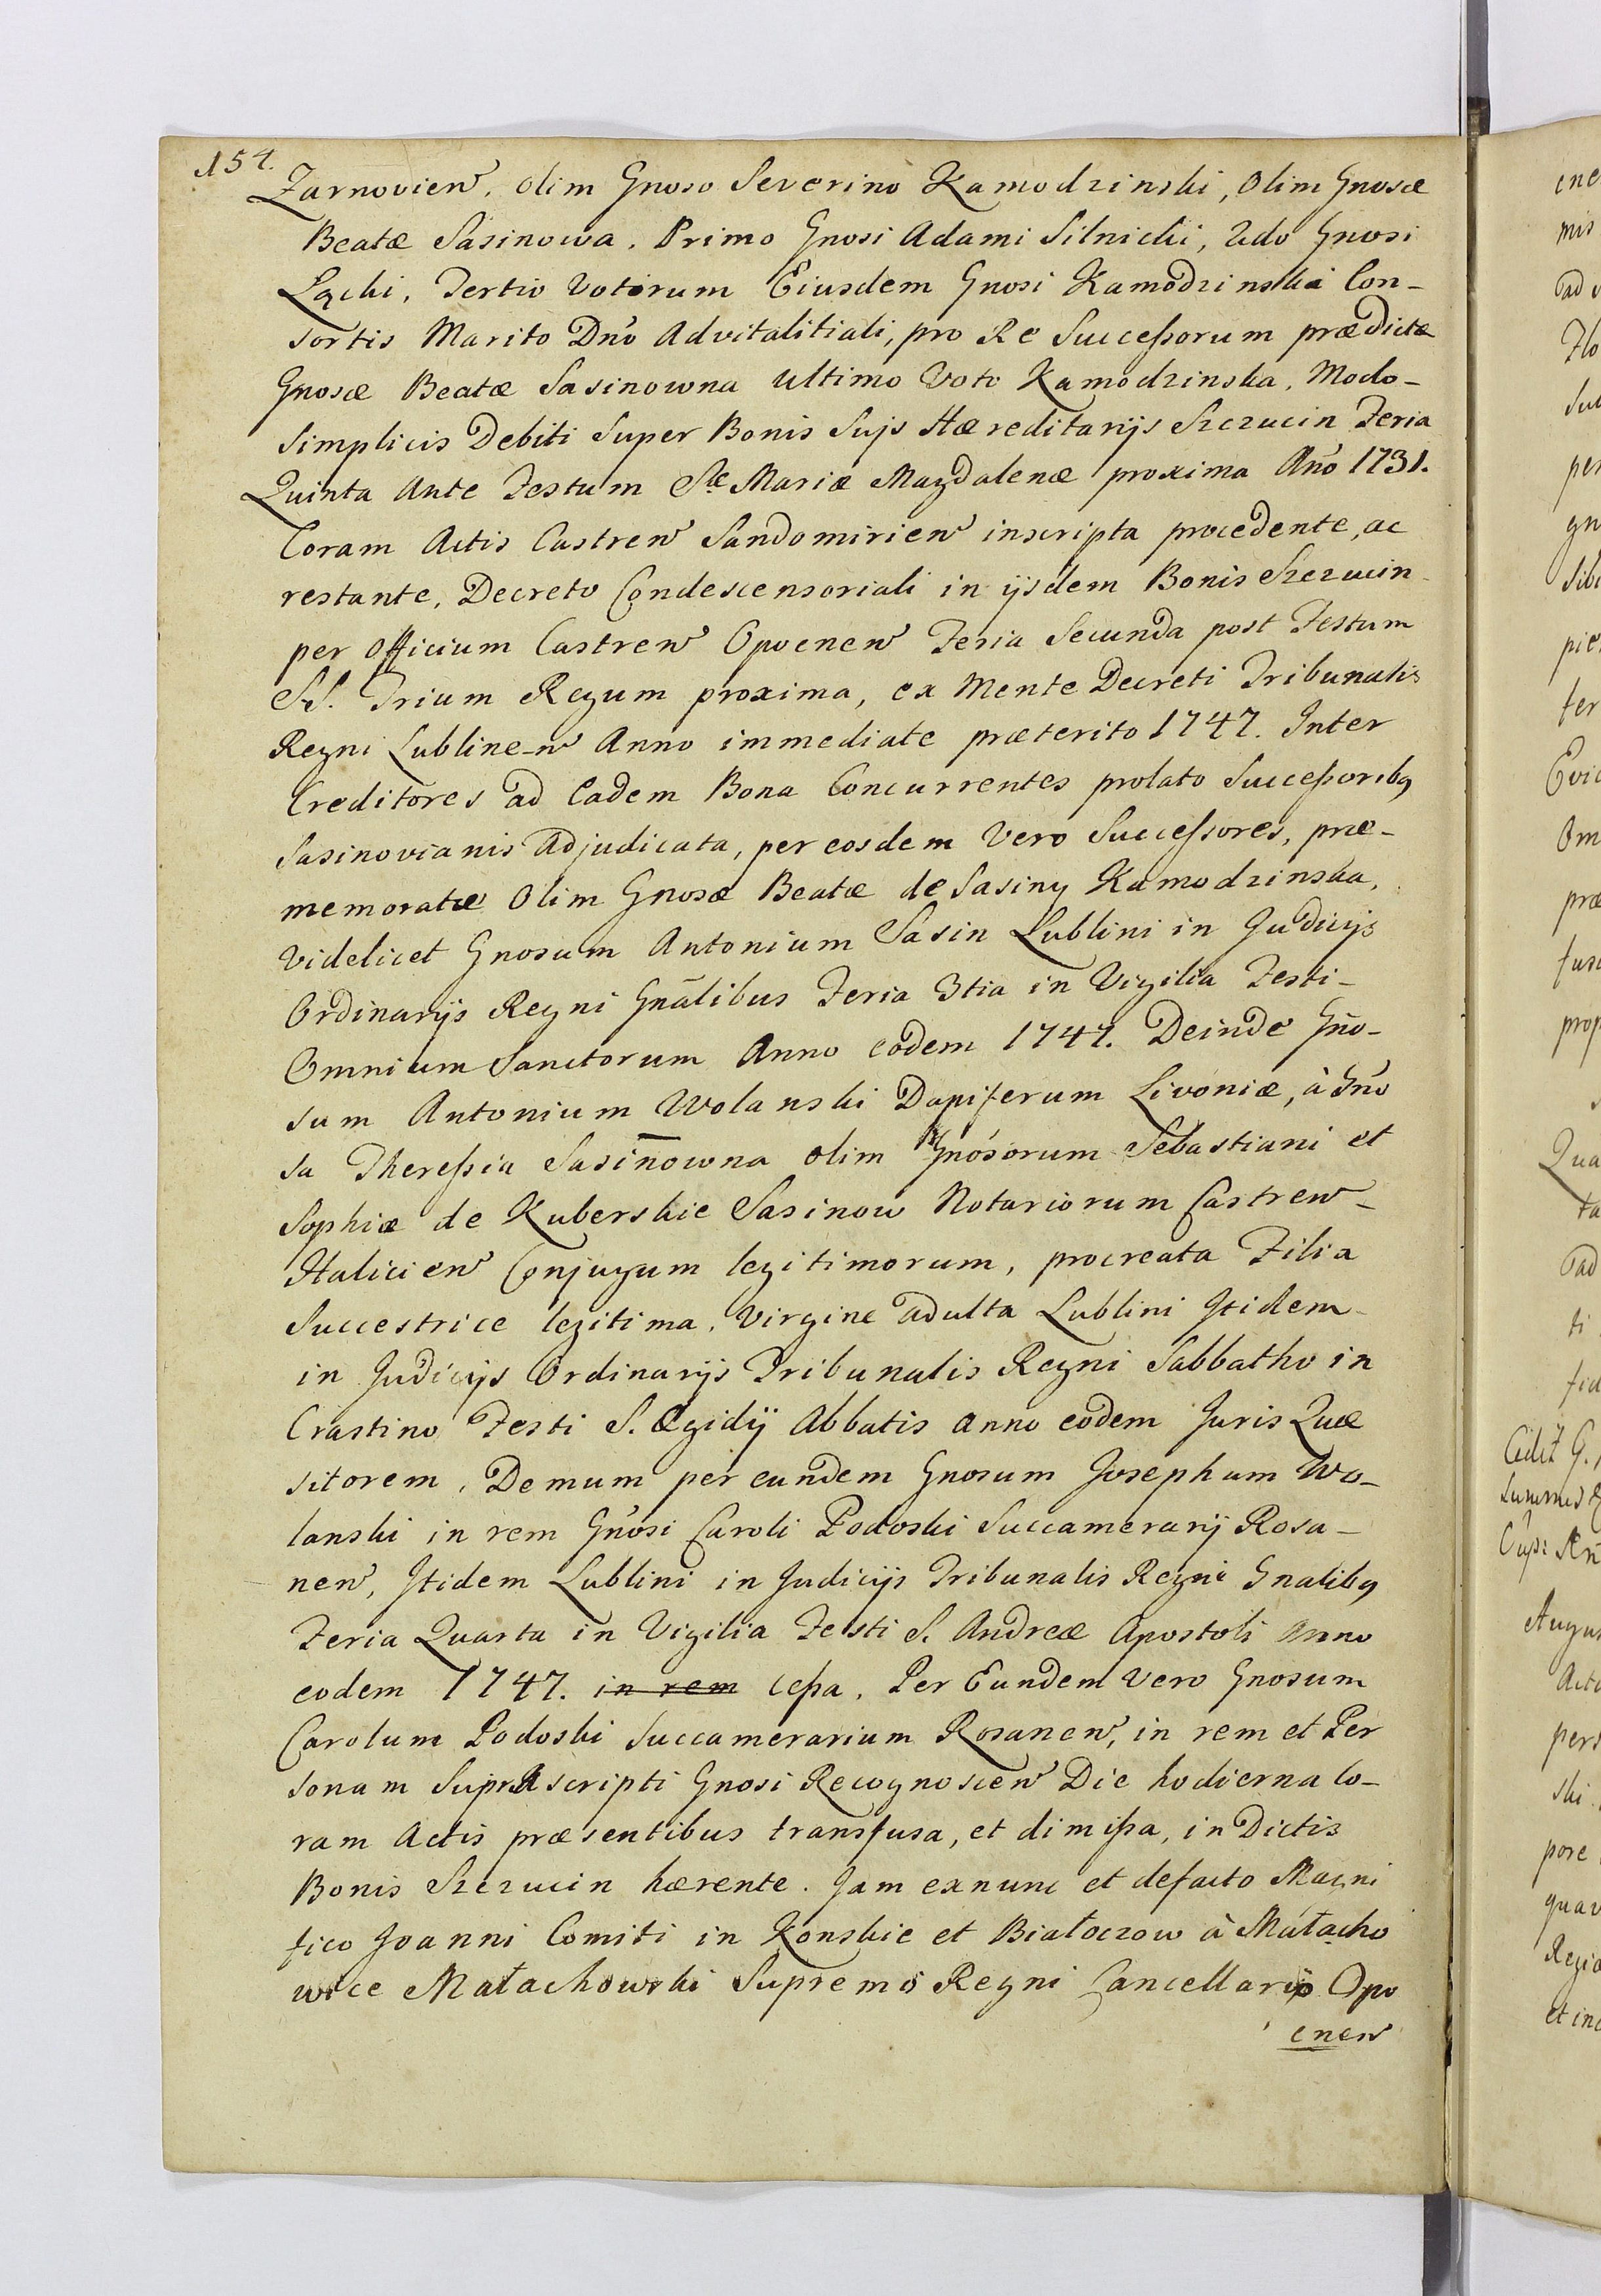 154.
Zarnovien̄, olim Gnoso Severino Kamodzinski, olim Gnosæ
Beatæ Sasinowa, Primo Gnosi Adami Silnicki, 2do Gnosi
Łącki, Tertio Votorum Eiusdem Gnosi Kamodzinski Con-
sortis Marito Dnō Advitalitiali, pro Re Succeßorum prædictæ
Gnosæ Beatæ Sasinowna ultimo Voto Kamodzinska, Modo-
Simplicis Debiti Super Bonis Sujs Hæreditarijs Szczucin Feria
Quinta Ante Festum Stæ Mariæ Magdalenæ proxima Añō 1731.
Coram Actis Castren̄ Sandomirien̄ inscripta procedente, ac
restante, Decreto Condescensoriali in ijsdem Bonis Szczucin
per Officium Castren̄ Opocnen̄ Feria Secunda post Festum
SS. Trium Regum proxima, ex Mente Decreti Tribunalis
Regni Lubline-n̄ Anno immediate præterito 1747. Inter
Creditores ad Eadem Bona Concurrentes prolato Succeßoribq
Sasinovianis Adjudicata, per eosdem Vero Succeßores, præ-
memoratæ Olim Gnosæ Beatæ de Sasiny Kamodzinska,
Videlicet Gnosum Antonium Sasin Lublini in Judicijs
Ordinarijs Regni Gnālibus Feria 3tia in Vigilia Festi-
Omnium Sanctorum Anno eodem 1747. Deinde Gño-
sum Antonium Wolanski Dapiferum Livoniæ, à Gño
sa Thereßia Sasinowna olim Mgnósorum Sebastiani et
Sophiæ de Kuberskie Sasinow Notariorum Castren̄-
Halicien̄ Conjugum legitimorum, procreata Filia
Succestrice legitima, Virgine adulta Lublini Itidem
in Judicijs Ordinarijs Tribunalis Regni Sabbatho in
Crastino Festi S. Ægidij Abbatis anno eodem Juris Quæ
sitorem, Demum per eundem Gnosum Josephum Wo-
lanski in rem Gñosi Caroli Podoski Succamerarij Rosa-
nen̄, Itidem Lublini in Judicijs Tribunalis Regni Gnalibq
Feria Quarta in Vigilia Festi S. Andreæ Apostoli Anno
eodem 1747. in rem ceßa, Per Eundem Vero Gnosum
Carolum Podoski Succamerarium Rosanen̄, in rem et Per
sonam SuprAscripti Gnosi Recognoscen̄ Die hodierna Co-
ram Actis præsentibus transfusa, et dimißa, in Dictis
Bonis Szczucin hærente. Jam exnunc et defacto Magni
fico Joanni Comiti in Konskie et Białoczow à Małacho
wice Małachowski Supremo Regni Cancellario Opo
cnen̄